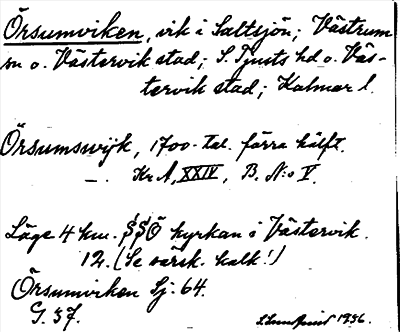 Örsumviken, vik i Saltsjön; Västrum
sn o. Västervik stad; S. Tjusts hd o. Väs-
tervik stad; Kalmar l.
Örsumswijk, 1700-tal. förra hälft.
—. Kr A, XXIV, B. N:o V.
Läge 4 km. SSÖ kyrkan i Västervik.
12. (Se särsk. kalk!)
Örsumviken Sj. 64.
G. 37.
1936.